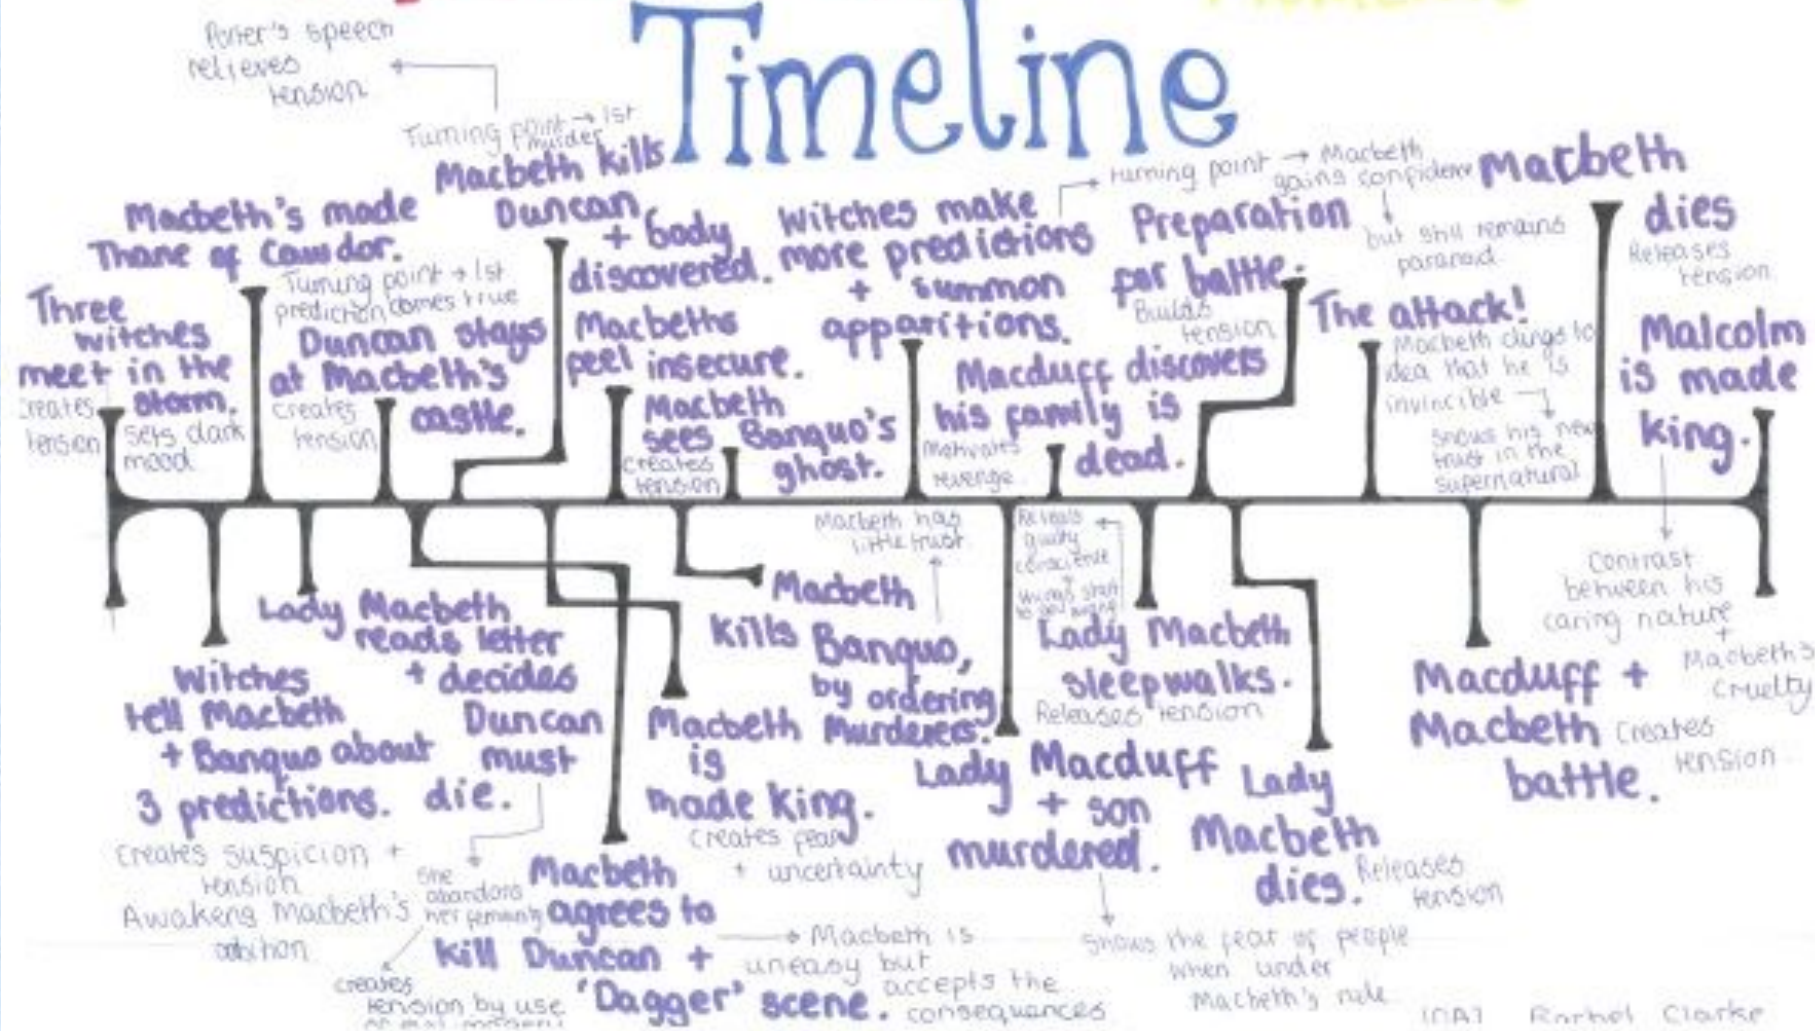 Timeline
Porter's speech
relieves
tension
Turning point → 1st
murder
Macbeth kills
Duncan
+ body
discovered.
Macbeth's made
Thane of Cawdor.
Turning point → 1st
prediction comes true
Three
witches
meet in the
storm.
creates
tension
sets dark
mood
Duncan stays
at Macbeth's
castle.
creates
tension
Macbeths
feel insecure.
Macbeth
sees Banquo's
ghost.
creates
tension
Witches make
more predictions
+ summon
apparitions.
turning point → Macbeth
gains confidence
but still remains
paranoid
Macduff discovers
his family is
dead.
Motivates
revenge
Preparation
for battle.
Builds
tension
The attack!
Macbeth clings to
idea that he is
invincible
shows his new
trust in the
supernatural
Macbeth
dies
Releases
tension
Malcolm
is made
king.
Contrast
between his
caring nature
+
Macbeth's
cruelty
Witches
tell Macbeth
+ Banquo about
3 predictions.
creates suspicion +
tension
Awakens Macbeth's
Lady Macbeth
reads letter
+ decides
Duncan
must
die.
she
abandons
her
creates
tension by use
Macbeth
agrees to
kill Duncan +
'Dagger' scene.
Macbeth is
uneasy but
accepts the
consequences
Macbeth
is
made king.
creates fear
+ uncertainty
Macbeth
kills Banquo,
by ordering
Murderers.
Macbeth has
little trust
Lady Macduff
+ son
murdered.
shows the fear of people
when under
Macbeth's rule
Reveals
guilty
conscience
things start
to go wrong
Lady Macbeth
sleepwalks.
Releases tension
Lady
Macbeth
dies.
Releases
tension
Macduff +
Macbeth
battle.
creates
tension
Rachel Clarke